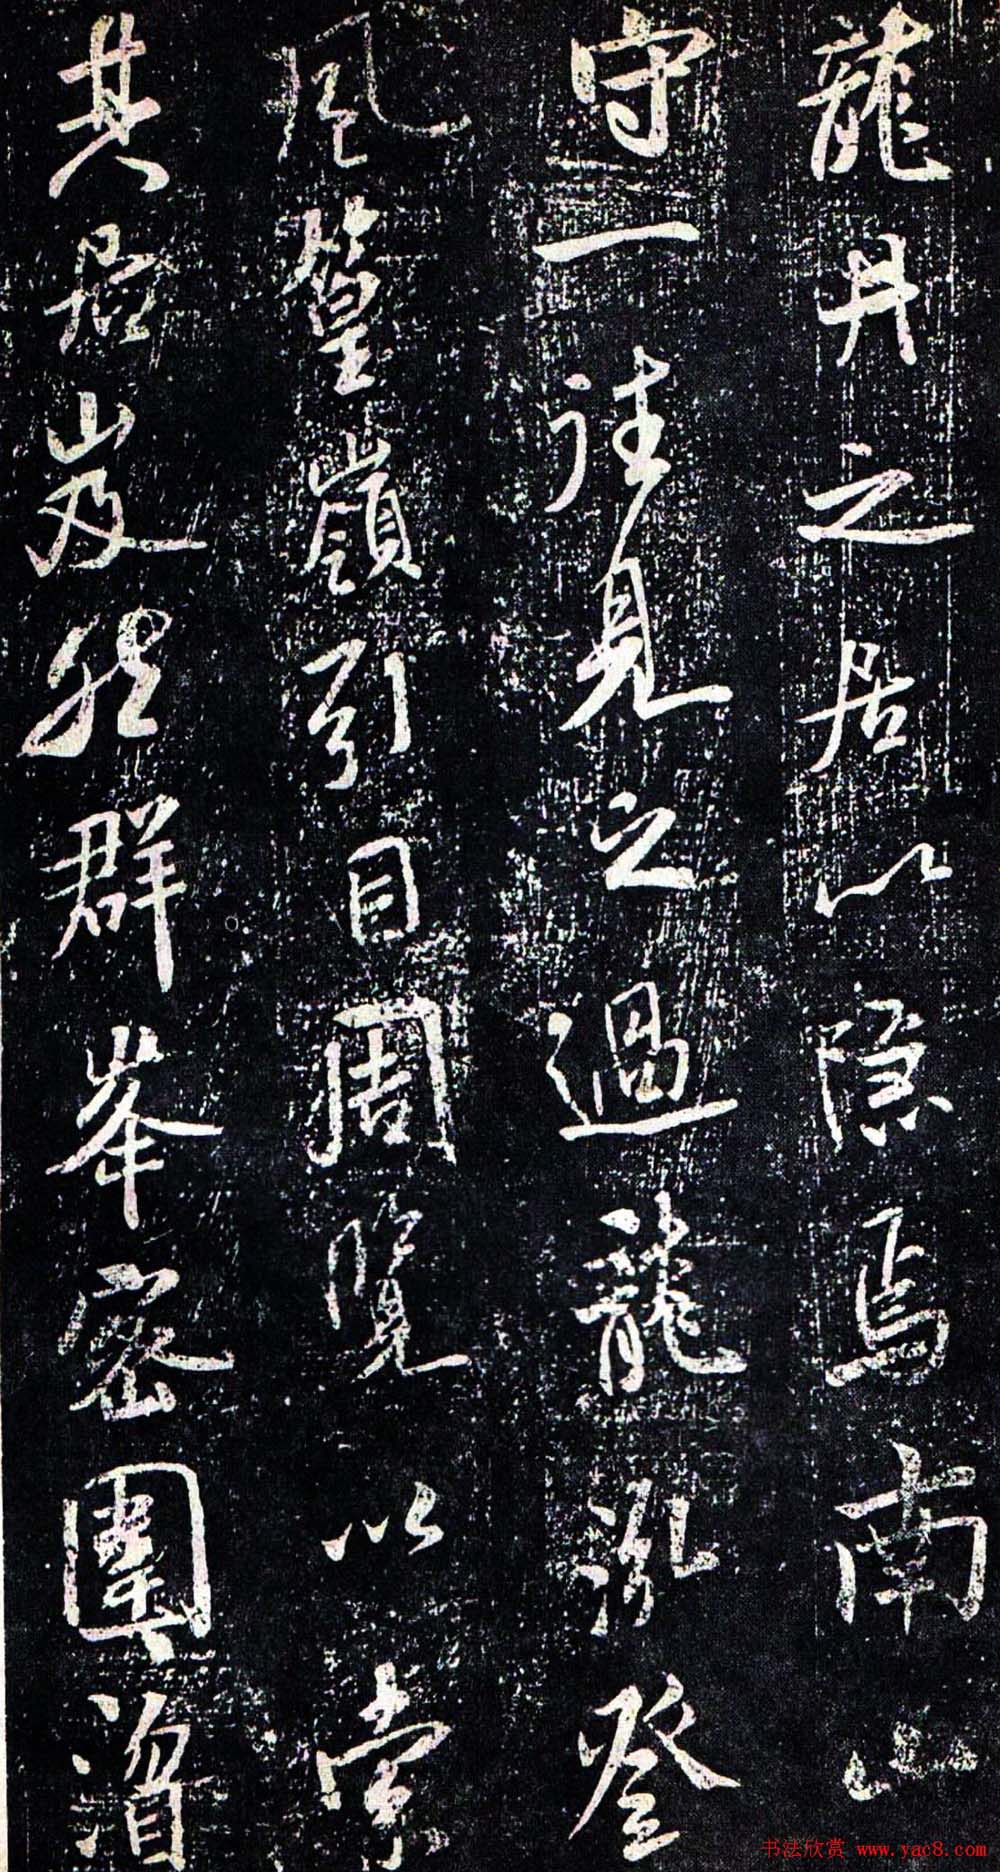 龍井之居以隱焉南山
守一往見之過龍泓登
風篁嶺引目周覽以索
其居岌然群峯密圍
书法欣赏 www.yac8.com